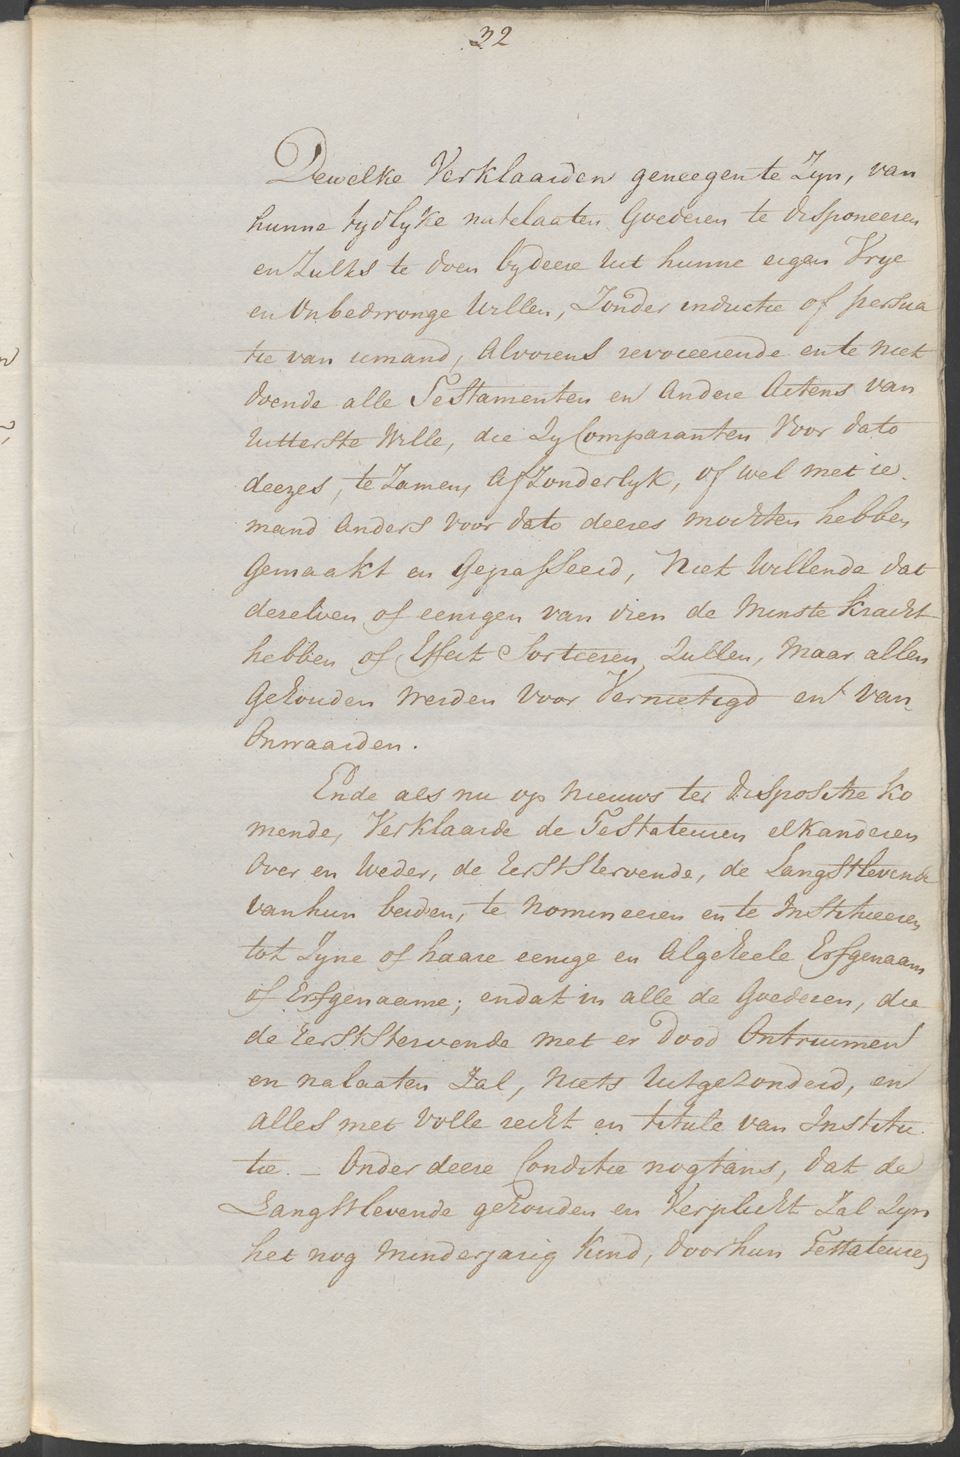 32
Dewelke Verklaarden geneegen te Zyn, van
hunne tydlyke natelaaten Goederen te disponeeren
en Zulks te doen by deese uit hunne eigen Vrye
en Onbedwonge Willen, Zonder inductie of persua
tie van iemand, Alvorens revoceerende en te niet
doende alle Testamenten en Andere Actens van
uitterste Wille, die Zy Comparanten Voor dato
deezes, te Zamen, Afzonderlyk, of wel met ie
mand Anders Voor dato deeses mochten hebben
Gemaakt en Gepasseerd, Niet Willende dat
deselven of eenigen van dien de Minste kracht
hebben of Effect Sorteeren Zullen, Maar allen
Gehouden Werden Voor Vernietigd en Van
Onwaarden.
Ende als nu op Nieuws ter dispositie ko
mende, Verklaarde de Testateuren elkanderen
Over en Weder, de Eerststervende, de Langstlevende
van hun beiden, te Nomineeren en te Institueeren
tot Zyne of haare eenige en Algeheele Erfgenaam
of Erfgenaame; en dat in alle de Goederen, die
de Eerststervende met er dood Ontruimen
en nalaaten Zal, Niets Uitgezonderd, en
Alles met Volle recht en titule van Institu
tie. — Onder deese Conditie nogtans, dat de
Langstlevende gehouden en Verplicht Zal Zyn
het nog Minderjarig Kind, door hun Testateuren